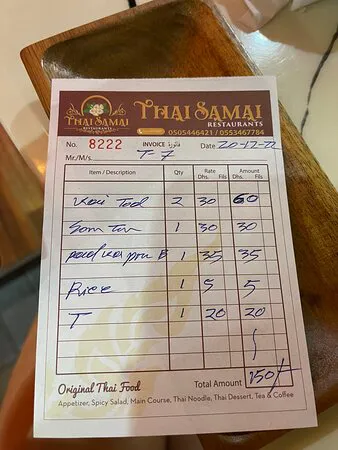 THAI SAMAI
RESTAURANTS
THAI SAMAI
RESTAURANTS
0505446421 / 0553467784
No. 8222 INVOICE فاتورة Date 20-12-22
Mr./M/s. T-7
Item / Description Qty Rate Amount
Dhs. Fils Dhs. Fils
Kai Tod 2 30 60
Som Tam 1 30 30
pad ka pra B 1 35 35
Rice 1 5 5
T 1 20 20
Original Thai Food Total Amount 150/-
Appetizer, Spicy Salad, Main Course, Thai Noodle, Thai Dessert, Tea & Coffee